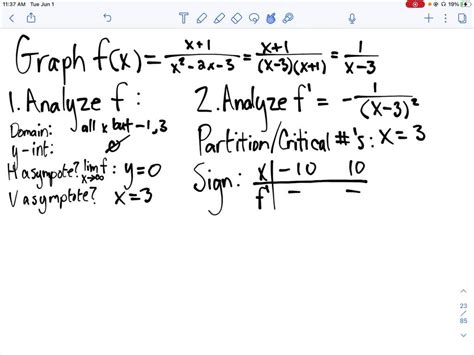 11:37 AM Tue Jun 1
19%
Graph f(x) = x+1 / x²-2x-3 = x+1 / (x-3)(x+1) = 1 / x-3
1. Analyze f:
Domain: all x but -1, 3
y-int: ∅
H asympote? lim x→∞ f: y=0
V asymptote? x=3
2. Analyze f' = - 1 / (x-3)²
Partition/Critical #'s: x=3
Sign: x | -10 10
f' | - -
23
/
85